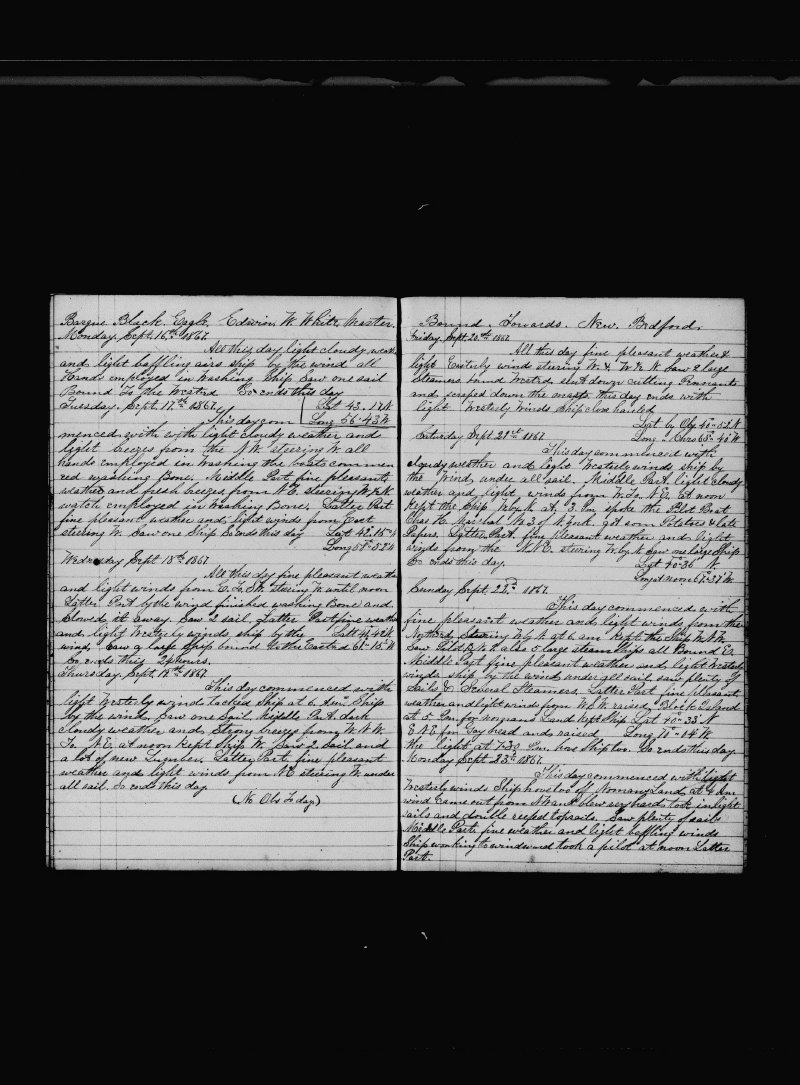 Barque Black Eagle, Edwin W. White Master.
Monday Sept. 16th 1867.
All this day light cloudy weath
and light baffling airs ship by the wind all
Hands employed in washing Ship Saw one sail
Bound To the Westrd So ends this day
Lat 43.17 N
Tuesday, Sept. 17th 1867.
Long 56-43 W
This day com
menced with with light cloudy weather and
light breezes from the N.W. steering W. all
hands employed in washing the boats commen
ced washing Bone. Middle Part fine pleasant
weather and fresh breezes from N.E. steering W.
watch employed in washing Bone. Latter Part
fine pleasant weather and light winds from East
steering W. Saw one Ship So ends this day Lat 42.15 N
Long 58-52 W
Wednesday Sept. 18th 1867.
All this day fine pleasant weather
and light winds from steering W. until noon
Latter Part by the wind finished washing Bone and
stowed it away. Saw 2 sail. Latter Part fine weather
and light Westerly winds ship by the Lat 41-42 N
wind. Saw a large Ship bound to the Eastrd 61-15 W
So ends this 24 hours.
Thursday, Sept. 19th 1867.
This day commenced with
light Westerly winds Tacked Ship at 6 Ship
by the wind. Saw one Sail. Middle Part dark
cloudy weather and strong breezes from W.N.W
To N.E. at noon Kept Ship W. Saw 2 sail and
a lot of new Lumber. Latter Part fine pleasant
weather and light winds from N.E steering W. under
all sail. So ends this day
(No Obs To day)
Bound Towards New Bedford.
Friday, Sept. 20th 1867.
All this day fine pleasant weather &
light Easterly wind steering W. & W. Saw 2 large
Steamers bound Westrd. sent down cutting Pennants
and scraped down the masts. this day ends with
light Westerly Winds Ship close hauled
Lat by Obs 40-52 N
Long " Chro 65-40 W
Saturday Sept. 21st 1867.
This day commenced with
cloudy weather and light Westerly winds ship by
the Wind, under all sail. Middle Part light cloudy
weather and light winds from W. To N.E. at noon
Kept the Ship W by N. at 3 Pm spoke the Pilot Boat
Chas H. Marshal No 3 of N. York. got som Potatoes & late
Papers. Latter Part fine pleasant weather and light
winds from the steering W. by N. Saw one large Ship
So ends this day.
Lat 40-36 N.
Long at noon 67-37 W.
Sunday Sept. 22nd 1867.
This day commenced with
fine pleasant weather and light winds from the
Northrd Steering W by N at 6 am Kept the Ship
Saw also 5 large steam ships all Bound E.
Middle Part fine pleasant weather and light Westerly
winds ship by the wind under all sail saw plenty of
Sails & Several Steamers. Latter Part fine pleasant
weather and light winds from raised Block Island
at 5 Pm for nomans Land Kept Ship Lat 40-33 N
for Gay head and raised Long 70-14 W
the light at 7-30 Pm. hove Ship too. So ends this day
Monday Sept. 23rd 1867.
This day commenced with light
Westerly winds Ship hove too of Nomans Land at 4 Am
wind came out from blew very hard took in light
sails and double reefed topsails. Saw plenty of sails
Middle Part fine weather and light baffling winds
Ship working to windward took a pilot at noon Latter
Part.